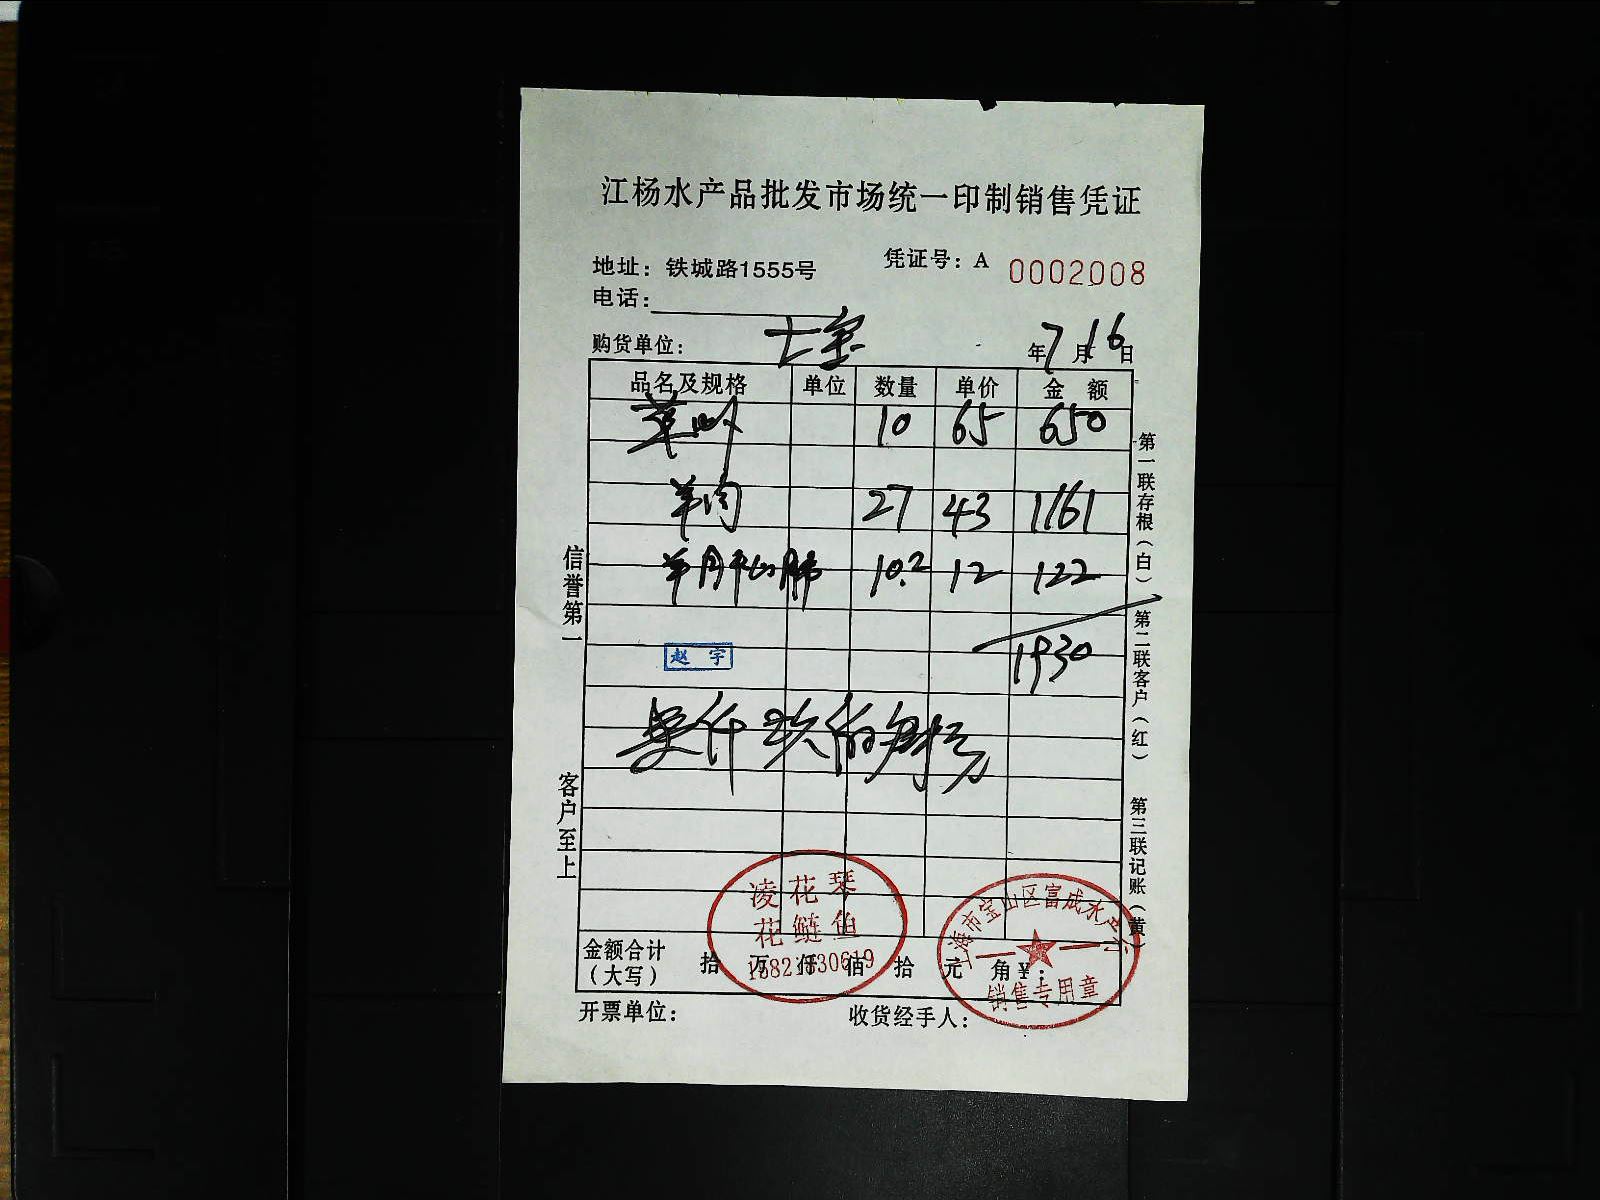 江杨水产品批发市场统一印制销售凭证
地址：铁城路1555号 凭证号：A 0002008
电话：
购货单位： 七宝 年7月16日
品名及规格 单位 数量 单价 金额
草 10 65 650
羊肉 27 43 1161
羊 10.2 12 122
1930
赵宇
壹仟玖佰叁拾元
金额合计（大写） 拾 万 仟 佰 拾 元 角 ¥：
凌花琴
花鲢鱼
上海市宝山区富成水产
销售专用章
开票单位： 收货经手人：
信誉第一
客户至上
第一联存根（白） 第二联客户（红） 第三联记账（黄）